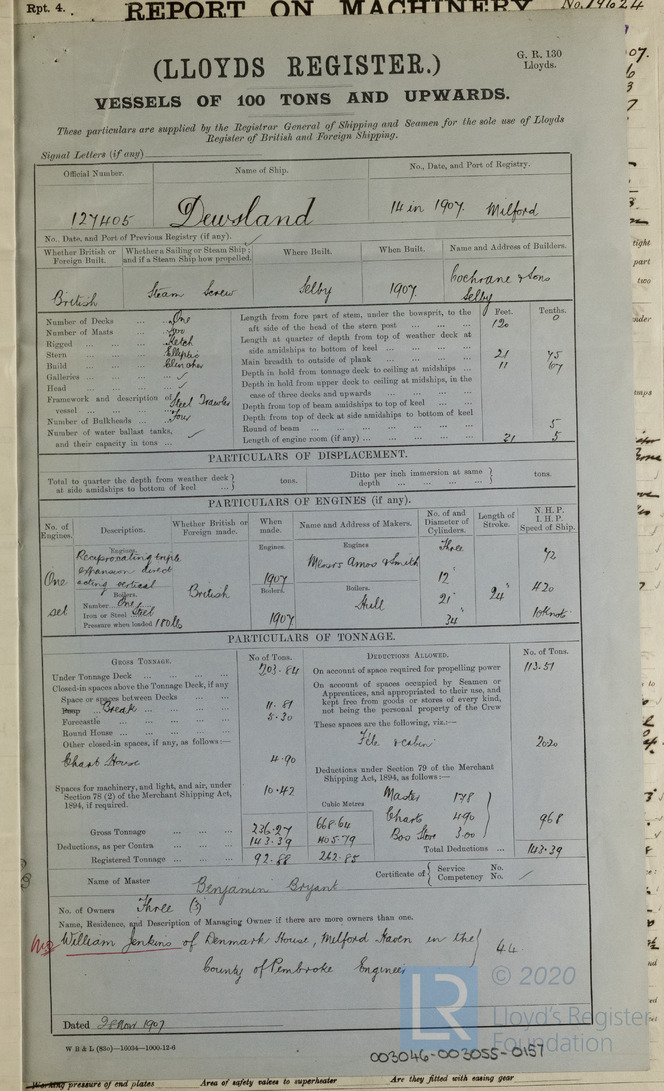 Rpt. 4.
REPORT ON MACHINERY
No. 19624
G. R. 130
Lloyds.
(LLOYDS REGISTER.)
VESSELS OF 100 TONS AND UPWARDS.
These particulars are supplied by the Registrar General of Shipping and Seamen for the sole use of Lloyds
Register of British and Foreign Shipping.
Signal Letters (if any)
Official Number. Name of Ship. No., Date, and Port of Registry.
127405 Dewsland 14 in 1907. Milford
No., Date, and Port of Previous Registry (if any).
Whether British or Foreign Built. Whether a Sailing or Steam Ship; and if a Steam Ship how propelled. Where Built. When Built. Name and Address of Builders.
British Steam Screw Selby 1907. Cochrane & Sons
Selby
Feet. Tenths.
Number of Decks ... One
Number of Masts ... Two
Rigged ... Ketch
Stern ... Elliptic
Build ... Clincher
Galleries ...
Head ...
Framework and description of vessel ... Steel Trawler
Number of Bulkheads ... Four
Number of water ballast tanks, and their capacity in tons ...
Length from fore part of stem, under the bowsprit, to the aft side of the head of the stern post ... 120 0
Length at quarter of depth from top of weather deck at side amidships to bottom of keel ...
Main breadth to outside of plank ... 21 75
Depth in hold from tonnage deck to ceiling at midships ... 11 67
Depth in hold from upper deck to ceiling at midships, in the case of three decks and upwards ...
Depth from top of beam amidships to top of keel ...
Depth from top of deck at side amidships to bottom of keel
Round of beam ... 5
Length of engine room (if any) ... 21 5
PARTICULARS OF DISPLACEMENT.
Total to quarter the depth from weather deck at side amidships to bottom of keel ... tons. Ditto per inch immersion at same depth ... tons.
PARTICULARS OF ENGINES (if any).
No. of Engines. Description. Whether British or Foreign made. When made. Name and Address of Makers. No. of and Diameter of Cylinders. Length of Stroke. N. H. P. I. H. P. Speed of Ship.
Engines. Engines. Engines Three
Reciprocating triple 72
expansion direct Messrs Amos & Smith
One acting vertical British 1907 12"
Boilers. Boilers. Boilers. 21" 24" 420
set Number One Hull
Iron or Steel Steel
Pressure when loaded 180 lbs 1907 34" 10 Knots
PARTICULARS OF TONNAGE.
GROSS TONNAGE. No of Tons. DEDUCTIONS ALLOWED. No. of Tons.
Under Tonnage Deck ... 203.84
Closed-in spaces above the Tonnage Deck, if any
Space or spaces between Decks ...
Poop ... Break ... 11.81
Forecastle ... 5.30
Round House ...
Other closed-in spaces, if any, as follows:—
Chart House 4.90
Spaces for machinery, and light, and air, under Section 78 (2) of the Merchant Shipping Act, 1894, if required. 10.42
Cubic Metres
Gross Tonnage ... 236.27 668.64
Deductions, as per Contra ... 143.39 405.79
Registered Tonnage ... 92.88 262.85
On account of space required for propelling power 113.51
On account of spaces occupied by Seamen or Apprentices, and appropriated to their use, and kept free from goods or stores of every kind, not being the personal property of the Crew
These spaces are the following, viz.:—
Fo'c'le & cabin 20.20
Deductions under Section 79 of the Merchant Shipping Act, 1894, as follows:—
Master 1.78
Charts 4.90 9.68
Bos Store 3.00
Total Deductions ... 143.39
Name of Master Benjamin Bryant Certificate of Service No. Competency No.
No. of Owners Three (3)
Name, Residence, and Description of Managing Owner if there are more owners than one.
William Jenkins of Denmark House, Milford Haven in the
County of Pembroke Engineer 44
Dated 28 Nov 1907
W B & L (83o)—10034—1000-12-6
003046-003055-0157
LR © 2020
Lloyd's Register
Foundation
Working pressure of end plates Area of safety valves to superheater Are they fitted with easing gear